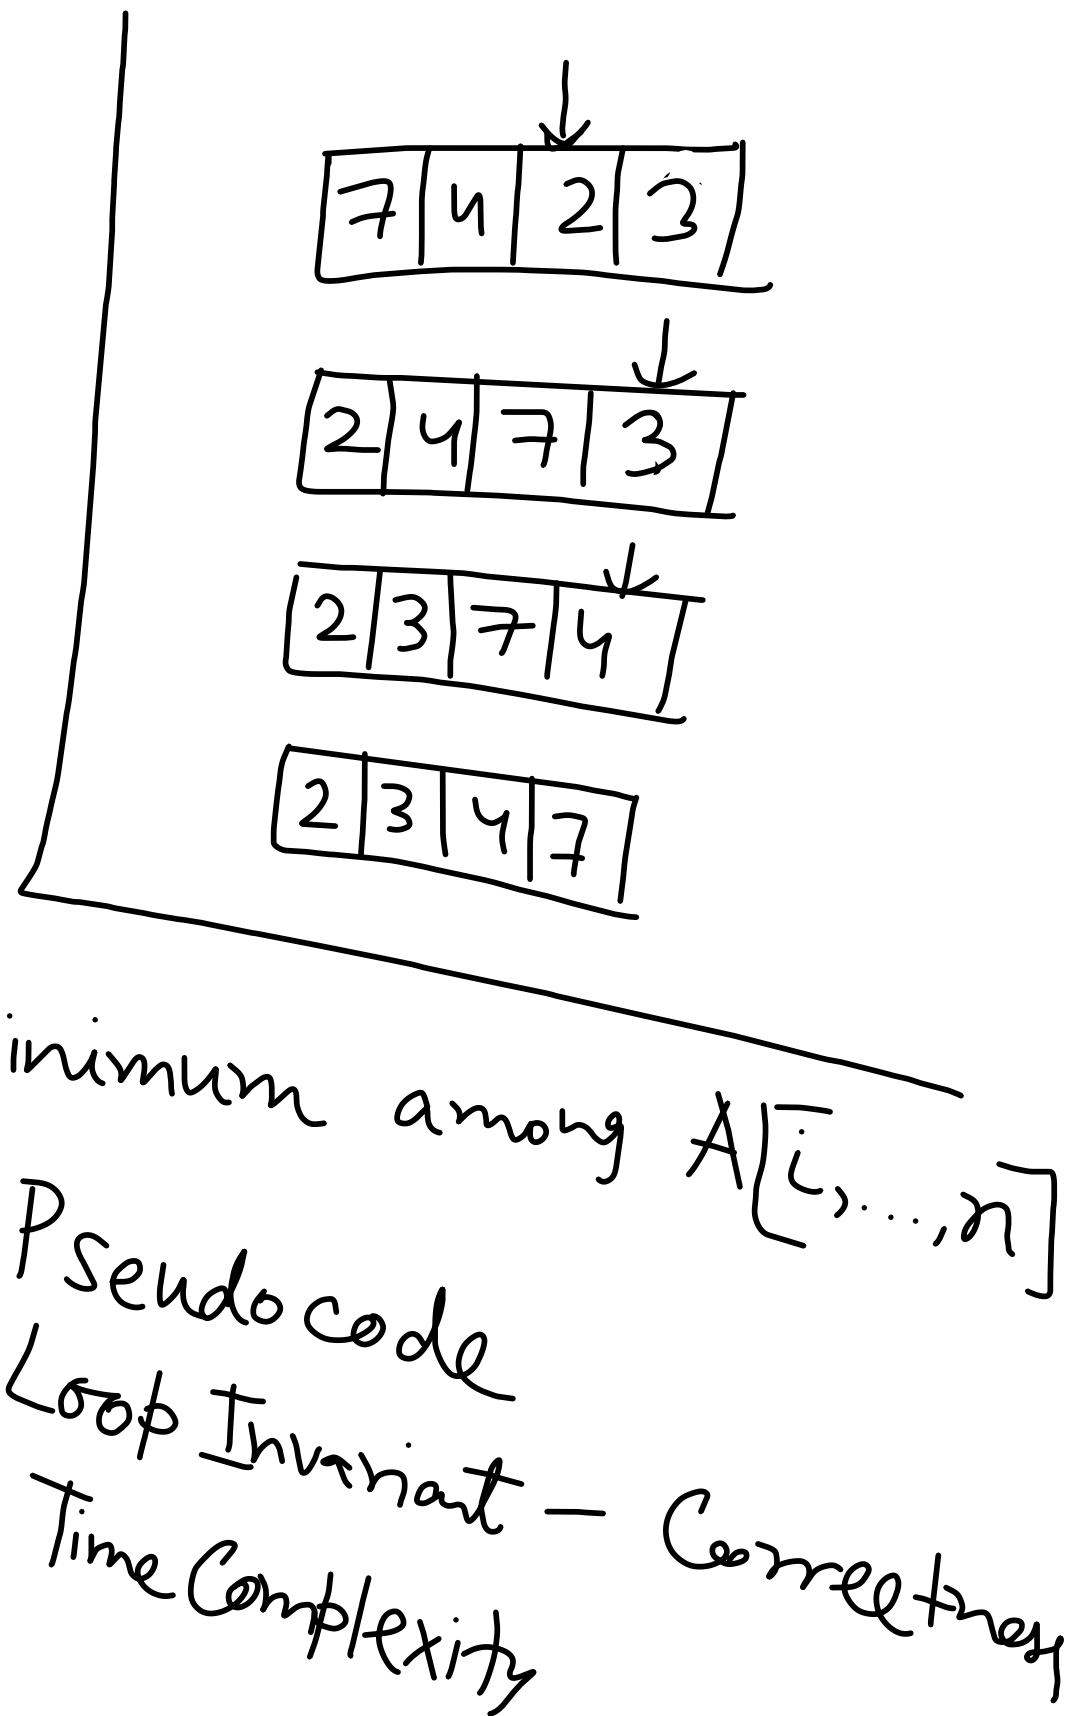 7 4 2 3
2 4 7 3
2 3 7 4
2 3 4 7
inimum among A[i,....,n]
Pseudocode
Loop Invariant - Correctness
Time Complexity